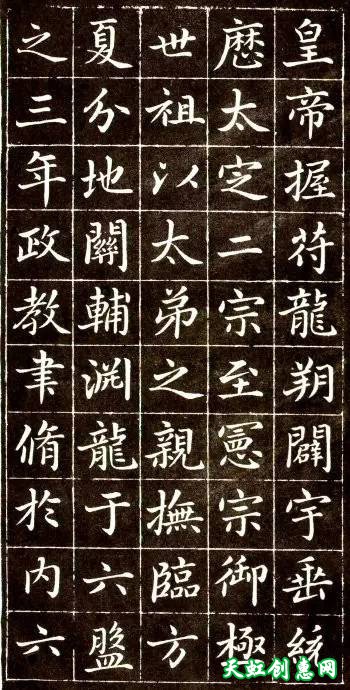 皇帝握符龍朔闢宇垂統
歷太定二宗至憲宗御極
世祖以太弟之親撫臨方
夏分地關輔淵龍于六盤
之三年政教聿脩於內六
天虹创意网